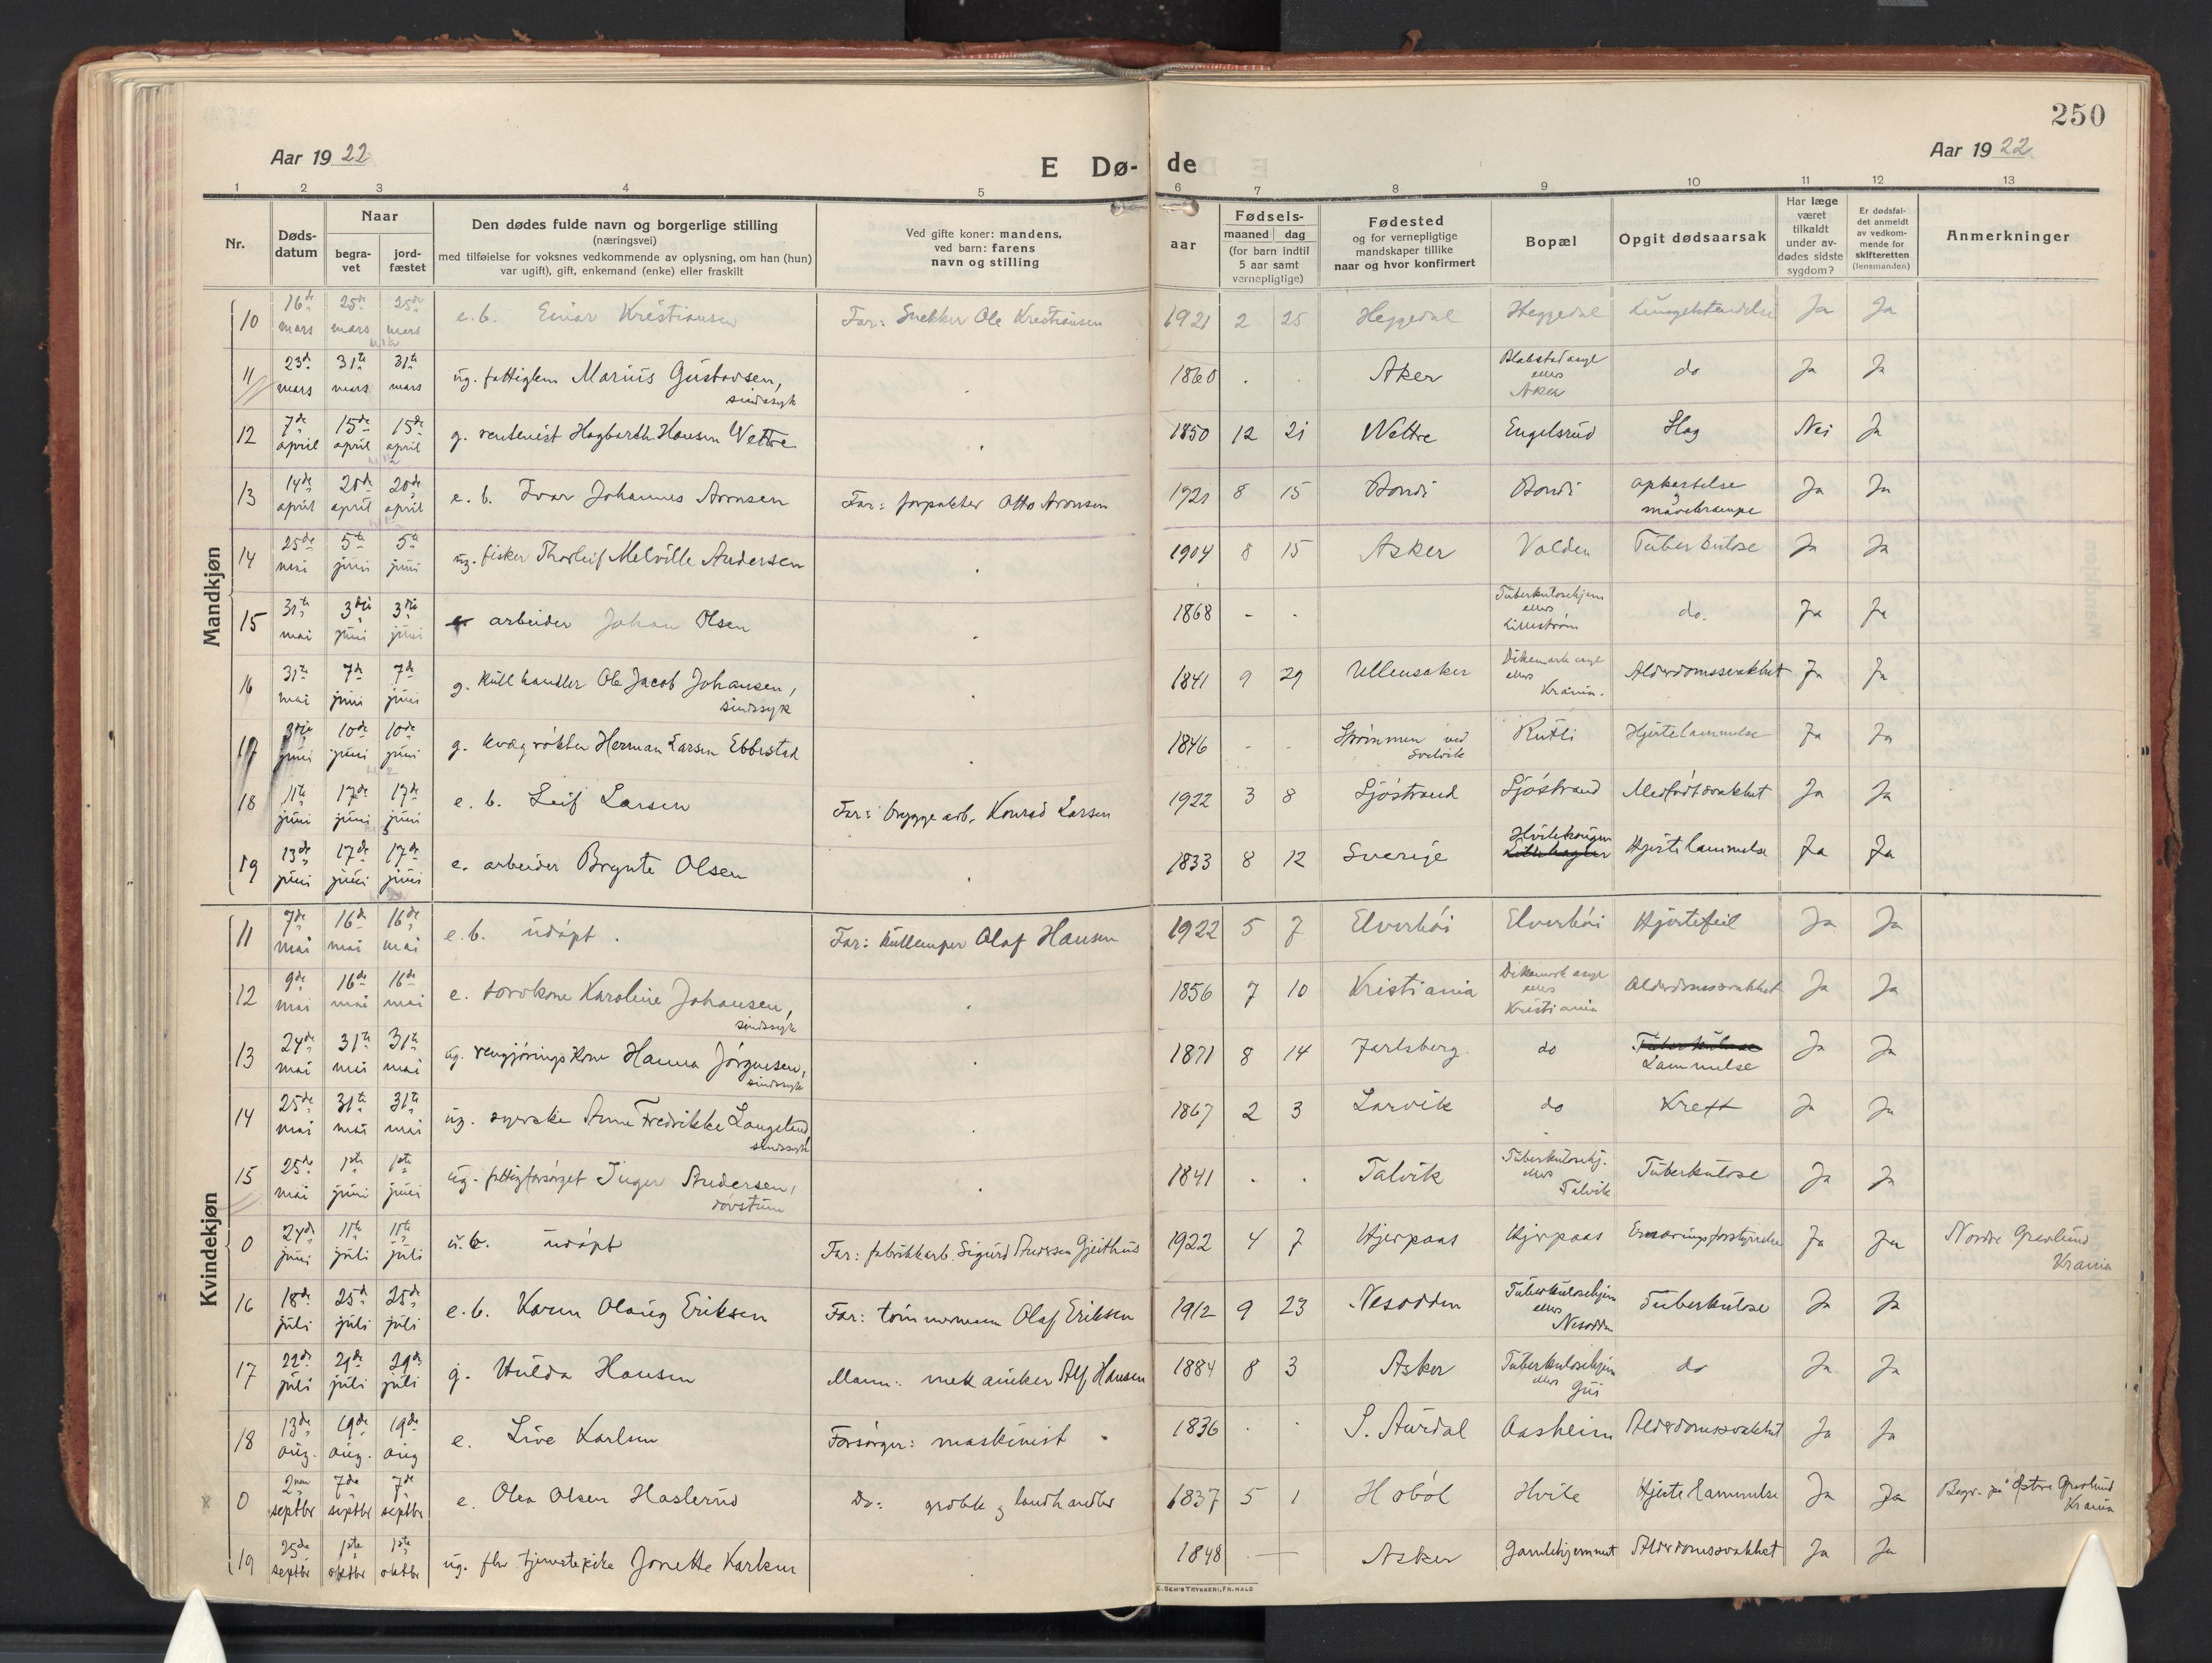 250
Aar 1922
E Dø- de
Aar 1922
1 2 3 4 5 6 7 8 9 10 11 12 13
Nr.
Døds-
datum
Naar
begra-
vet
jord-
fæstet
Den dødes fulde navn og borgerlige stilling
(næringsvei)
med tilføielse for voksnes vedkommende av oplysning, om han (hun)
var ugift), gift, enkemand (enke) eller fraskilt
Ved gifte koner: mandens,
ved barn: farens
navn og stilling
aar
Fødsels-
maaned dag
(for barn indtil
5 aar samt
vernepligtige)
Fødested
og for vernepligtige
mandskaper tillike
naar og hvor konfirmert
Bopæl
Opgit dødsaarsak
Har læge
været
tilkaldt
under av-
dødes sidste
sygdom?
Er dødsfal-
det anmeldt
av vedkom-
mende for
skifteretten
(lensmanden)
Anmerkninger
Mandkjøn
10 16de mars 25de mars 25de mars e. b. Einar Kristiansen Far: Snekker Ole Kristiansen 1921 2 25 Heggedal Heggedal Lungebetændelse Ja Ja
11 23de mars 31te mars 31te mars ug. fattiglem Marius Gustavsen, sindssyk 1860 . . Aker Blakstad asyl ellers Aker do Ja Ja
12 7de april 15de april 15de april g. rentenist Hagbarth Hansen Wettre 1850 12 21 Wettre Engelsrud Slag Nei Ja
13 14de april 20de april 20de april e. b. Ivar Johannes Aronsen Far: forpakter Otto Aronsen 1921 8 15 Bondi Bondi opkastelse og mavekrampe Ja Ja
14 25de mai 5te juni 5te juni ug. fisker Thorleif Melville Andersen 1904 8 15 Asker Valden Tuberkulose Ja Ja
15 31te mai 3die juni 3die juni arbeider Johan Olsen 1868 - - Tuberkulosehjem ellers Lillestrøm do. Ja Ja
16 31te mai 7de juni 7de juni g. kullhandler Ole Jacob Johansen, sindssyk 1841 9 29 Ullensaker Dikemark asyl ellers Krania. Alderdomssvakhet Ja Ja
17 3die juni 10de juni 10de juni g. kvægrøkter Herman Larsen Ebbestad 1846 - - Strømmen ved Svelvik Rutli Hjertelammelse Ja Ja
18 11te juni 17de juni 17de juni e. b. Leif Larsen Far: bryggearb. Konrad Larsen 1922 3 8 Sjøstrand Sjøstrand Medfødt svakhet Ja Ja
19 13de juni 17de juni 17de juni e. arbeider Brynte Olsen 1833 8 12 Sverige Hvilehaugen Hjertelammelse Ja Ja
Kvindekjøn
11 7de mai 16de mai 16de mai e. b. udøpt. Far: kullemper Olaf Hansen 1922 5 7 Elverhøi Elverhøi Hjertefeil Ja Ja
12 9de mai 16de mai 16de mai e. torvkone Karoline Johansen, sindssyk 1856 7 10 Kristiania Dikemark asyl ellers Kristiania Alderdomssvakhet Ja Ja
13 24de mai 31te mai 31te mai ug. rengjøringskone Hanna Jørgensen, sindssyk 1871 8 14 Jarlsberg. do Tuberkulose Lammelse Ja Ja
14 25de mai 31te mai 31te mai ug. syerske Anne Fredrikke Langeland, sindssyk 1867 2 3 Larvik do Kreft Ja Ja
15 25de mai 1ste juni 1ste juni ug. fattigforsørget Inger Andersen, døvstum 1841 . . Talvik Tuberkulosehj. ellers Talvik Tuberkulose Ja Ja
0 24de juni 11te juli 11te juli u. b. udøpt Far: fabrikkarb. Sigurd Andersen Gjeithus 1922 4 7 Hjerpaas Hjerpaas Ernæringsforstyrrelse Ja Ja Nordre Gravlund Krania
16 18de juli 25de juli 25de juli e. b. Karen Olaug Eriksen Far: tømmermann Olaf Eriksen 1912 9 23 Nesodden Tuberkulosehjem ellers Nesodden Tuberkulose Ja Ja
17 22de juli 29de juli 29de juli g. Hulda Hansen Mann: mekaniker Alf Hansen 1884 8 3 Asker Tuberkulosehjem ellers Gui do Ja Ja
18 13de aug. 19de aug. 19de aug e. Live Karlsen Forsørger: maskinist 1836 . . S. Aurdal Aasheim Alderdomssvakhet Ja Ja
0 2nen septbr 7de septbr 7de septbr e. Olea Olsen Haslerud Do: grobk og landhandler 1837 5 1 Hobøl Hvile Hjertelammelse Ja Ja Begr. på Østre Gravlund Krania
19 25de septbr 1ste oktbr 1ste oktbr ug. fhv. tjenestepike Jonette Karlsen 1848 . — Asker Gamlehjemmet Alderdomssvakhet Ja Ja
E. SEM'S TRYKKERI, FR.HALD